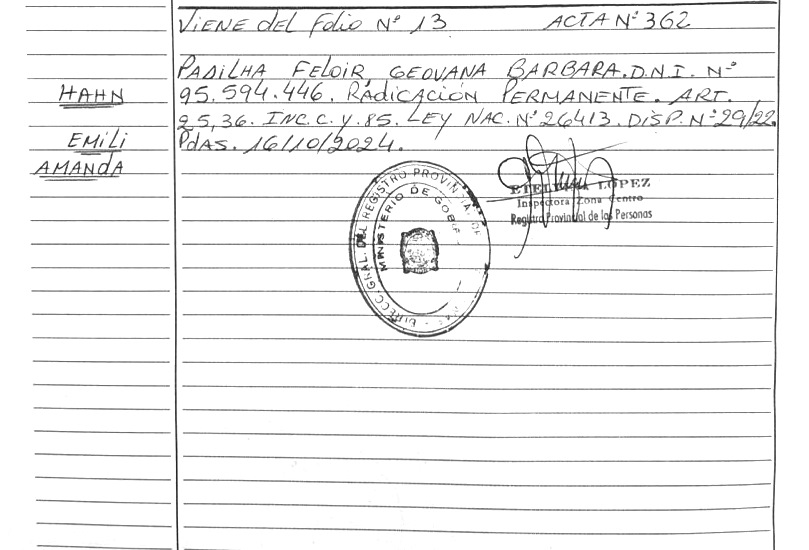 VIENE DEL FOLIO Nº 13 ACTA Nº 362
PADILHA FELOIR, GEOVANA BARBARA. D.N.I. Nº
HAHN
95.594.446. RADICACIÓN PERMANENTE. ART.
25,36. INC.C. Y. 85. LEY NAC. Nº 26413. DISP. Nº 29/22.
EMILI
PdAS. 16/10/2024.
AMANDA
LOPEZ
Inspectora Zona Centro
Registro Provincial de las Personas
DIRECC. GRAL. DEL REGISTRO PROVINCIAL DE
MINISTERIO DE